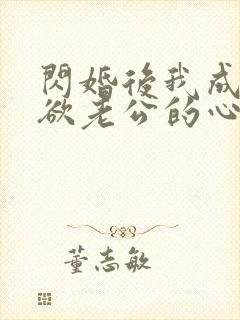 閃婚後我成
欲老公的心
董志敏